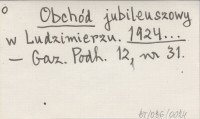 o
Obchód jubileuszowy
w Ludzimierzu. 1924...
— Gaz. Podh. 12, nr 31.